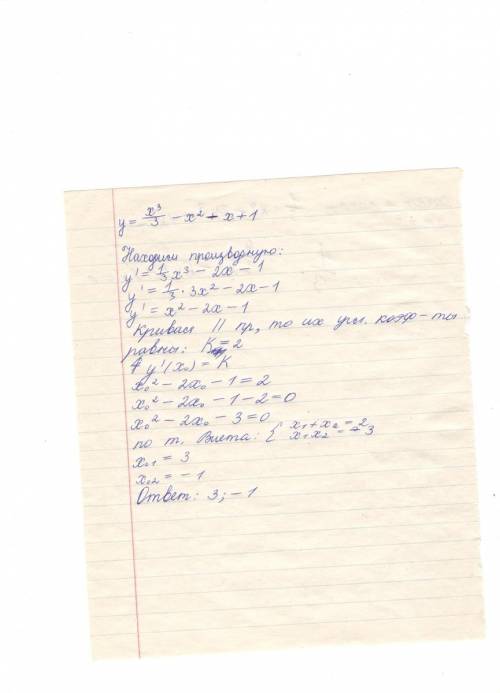 y = x³/3 - x² - x + 1
Находим производную:
y' = 1/3 x³ - 2x - 1
y' = 1/3 · 3x² - 2x - 1
y' = x² - 2x - 1
Кривая || пр, то их угл. коэф-ты
равны: K = 2
y'(x₀) = K
x₀² - 2x₀ - 1 = 2
x₀² - 2x₀ - 1 - 2 = 0
x₀² - 2x₀ - 3 = 0
по т. Виета: { x₁ + x₂ = 2
x₁x₂ = -3
x₀₁ = 3
x₀₂ = -1
Ответ: 3; -1